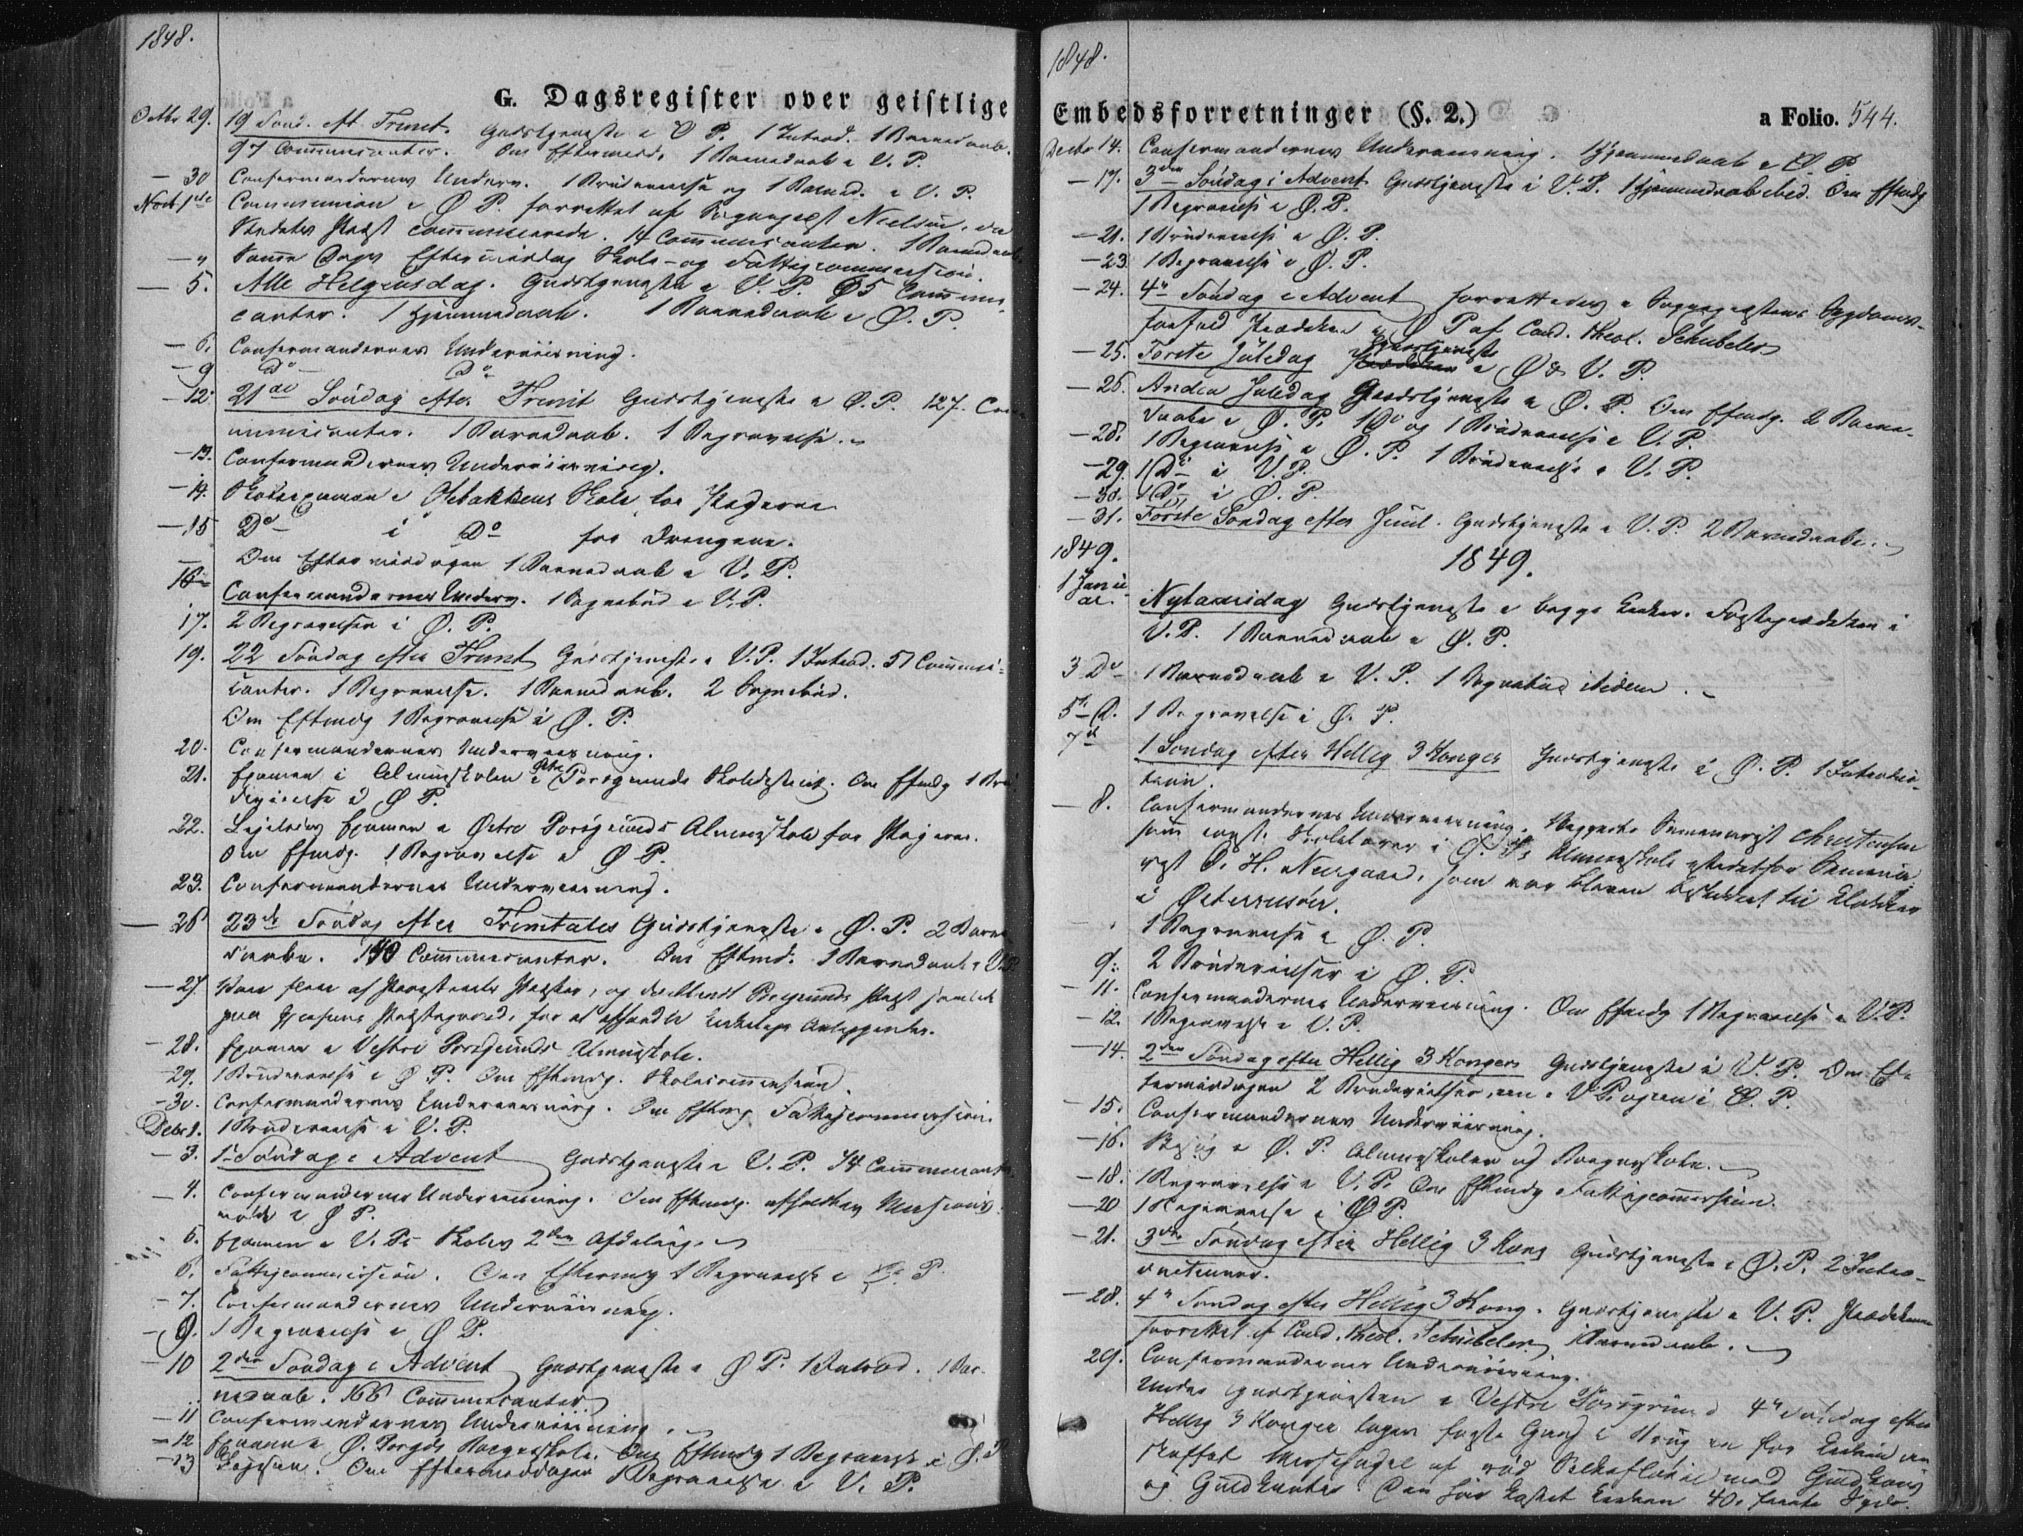 1848.
G. Dagsregister over geistlige
Octbr 29. 19 Sønd. eft Trinit. Gudstjeneste i Ø P. 1 Introd. 1 Barnedaab.
97 Communicanter. Om Eftermidd. 1 Barnedaab i V. P.
— 30 Confirmandernes Underv. 1 Brudevielse og 1 Barned. i V. P.
Novbr 1ste Communion i Ø P. forrettet af Sogneprest Nielsen, da
Stedets Præst communicerede. 14 Communicanter. 1 Barnedaab
— " Samme Dags Eftermiddag Skole- og Fattigcommission.
— 5. Alle Helgensdag. Gudstjeneste i V. P. 85 Communi-
canter. 1 Hjemmedaab. 1 Barnedaab i Ø. P.
— 6. Confirmandernes Underviisning.
— 9 Do Do
— 12. 21de Søndag efter Trinit Gudstjeneste i Ø. P. 127. Com-
municanter. 1 Barnedaab. 1 Begravelse.
— 13. Confirmandernes Underviisning.
— 14. Skoleexamen i Osebakkens Skole for Pigerne
— 15 Do i Do for Drengene.
Om Eftermiddagen 1 Barnedaab i V. P.
16 Confirmandernes Underv. 1 Sognebud i V. P.
17. 2 Begravelser i Ø. P.
19. 22 Søndag efter Trinit Gudstjeneste i V. P. 1 Introd. 51 Communi-
canter. 1 Begravelse. 1 Barnedaab. 2 Sognebud.
Om Eftmdg 1 Begravelse i Ø. P.
20. Confirmandernes Underviisning.
21. Examen i Almueskolen i Østre Porsgrunds Skoledistrict. Om Eftmdg 1 Bru-
devielse i Ø P.
22. Ligeledes Examen i Østre Porsgrunds Almueskole for Pigerne.
Om Eftmdg. 1 Begravelse i Ø P.
23. Confirmandernes Underviisning.
— 26 23de Søndag efter Trinitatis Gudstjeneste i Ø. P. 2 Barne-
daabe. 140 Communicanter. Om Eftmd. 1 Barnedaab i V. P.
— 27.
— 28. Examen i Vestre Porsgrunds Almueskole.
— 29. 1 Brudevielse i Ø P. Om Eftmdg. Skolecommission.
— 30. Confirmandernes Underviisning. Om Eftmdg Fattigcommission.
Decbr 1. 1 Brudevielse i V. P.
— 3. 1ste Søndag i Advent Gudstjeneste i V. P. 74 Communicanter
— 4. Confirmandernes Underviisning. Om Eftmdg. afholdtes Missions-
møde i Ø P.
5. Examen i V. Ps Skoles 2den Afdeling.
6. Fattigcommission. Om Eftermdg 1 Begravelse i P.
— 7. Confirmandernes Underviisning.
— 9. 1 Begravelse i Ø P.
— 10 2den Søndag i Advent Gudstjeneste i Ø P. 1 Introd. 1 Bar-
nedaab. 168 Communicanter
— 11 Confirmandernes Underviisning.
— 12 Examen i Ø. Porsgds Borgerskole. Om Eftmdg 1 Begravelse i Ø. P.
— 13 Ligesaa. Om Eftermiddagen 1 Begravelse i V. P.
1848.
Embedsforretninger (§. 2.) a Folio. 544.
Decbr 14. Confirmandernes Underviisning. 1 Hjemmedaab i Ø P.
— 17. 3den Søndag i Advent Gudstjeneste i V. P. 1 Hjemmedaab Om Eftmdg
1 Begravelse i Ø. P.
— 21. 1 Brudevielse i Ø. P.
— 23. 1 Begravelse i Ø. P.
— 24. 4de Søndag i Advent forrettedes i Sognepræstens Sygdoms-
forfald Prædiken i Ø P af Cand. theol. Schubeler
— 25. Første Juledag Gudstjeneste i Ø & V. P.
— 26. Anden Juledag Gudstjeneste i Ø. P. Om Eftmdg. 2 Barne-
daabe i Ø. P. 1 Do og 1 Brudevielse i V. P.
— 28. 1 Begravelse i Ø. P. 1 Brudevielse i V. P.
— 29. 1 Do i V. P.
— 30. 1 Do i Ø. P.
— 31. Første Søndag efter Juul. Gudstjeneste i V. P. 2 Barnedaabe.
1849. 1849.
1 Janu-
ar. Nytaarsdag Gudstjeneste i begge Kirker. Første Prædiken i
V. P. 1 Barnedaab i Ø. P.
3 Do 1 Barnedaab i V. P. 1 Sognebud ibidem.
5te D. 1 Begravelse i Ø. P.
7de 1 Søndag efter Hellig 3 Konger Gudstjeneste i Ø. P. 1 Introduc-
tion.
— 8. Confirmandernes Underviisning. Seminarist Christensen
som Skolelærer i Ø. Ps Almueskole istedetfor Semina-
rist O. H. Neergaard, som var bleven beskikket til Klokker
i Østerrisøer.
" 1 Begravelse i Ø. P.
9. 2 Brudevielser i Ø. P.
— 11. Confirmandernes Underviisning. Om Eftmdg 1 Begravelse i V. P.
— 12. 1 Begravelse i V. P.
— 14. 2den Søndag efter Hellig 3 Konger Gudstjeneste i V. P. Om Ef-
termiddagen 2 Brudevielser, een i V P og een i Ø. P.
— 15. Confirmandernes Underviisning.
— 16. Besøg i Ø. P. Almueskolen og Borgerskolen.
— 18. 1 Begravelse i V. P. Om Eftmdg Fattigcommission.
— 20 1 Begravelse i Ø P.
— 21. 3die Søndag efter Hellig 3 Kong Gudstjeneste i Ø. P. 2 Intro-
ductioner.
— 28. 4de Søndag efter Hellig 3 Kong. Gudstjeneste i V. P. Prædiken
forrettet af Cand. theol. Schubeler 1 Barnedaab.
29. Confirmandernes Underviisning.
Under Gudstjenesten i Vestre Porsgrund 4de Søndag efter
Hellig 3 Konger toges første Gang i Brug en for Kirken an-
skaffet Messehagel af rød Silkefløiel med Guldkors
og Guldkanter. Den har kostet Kirken 40